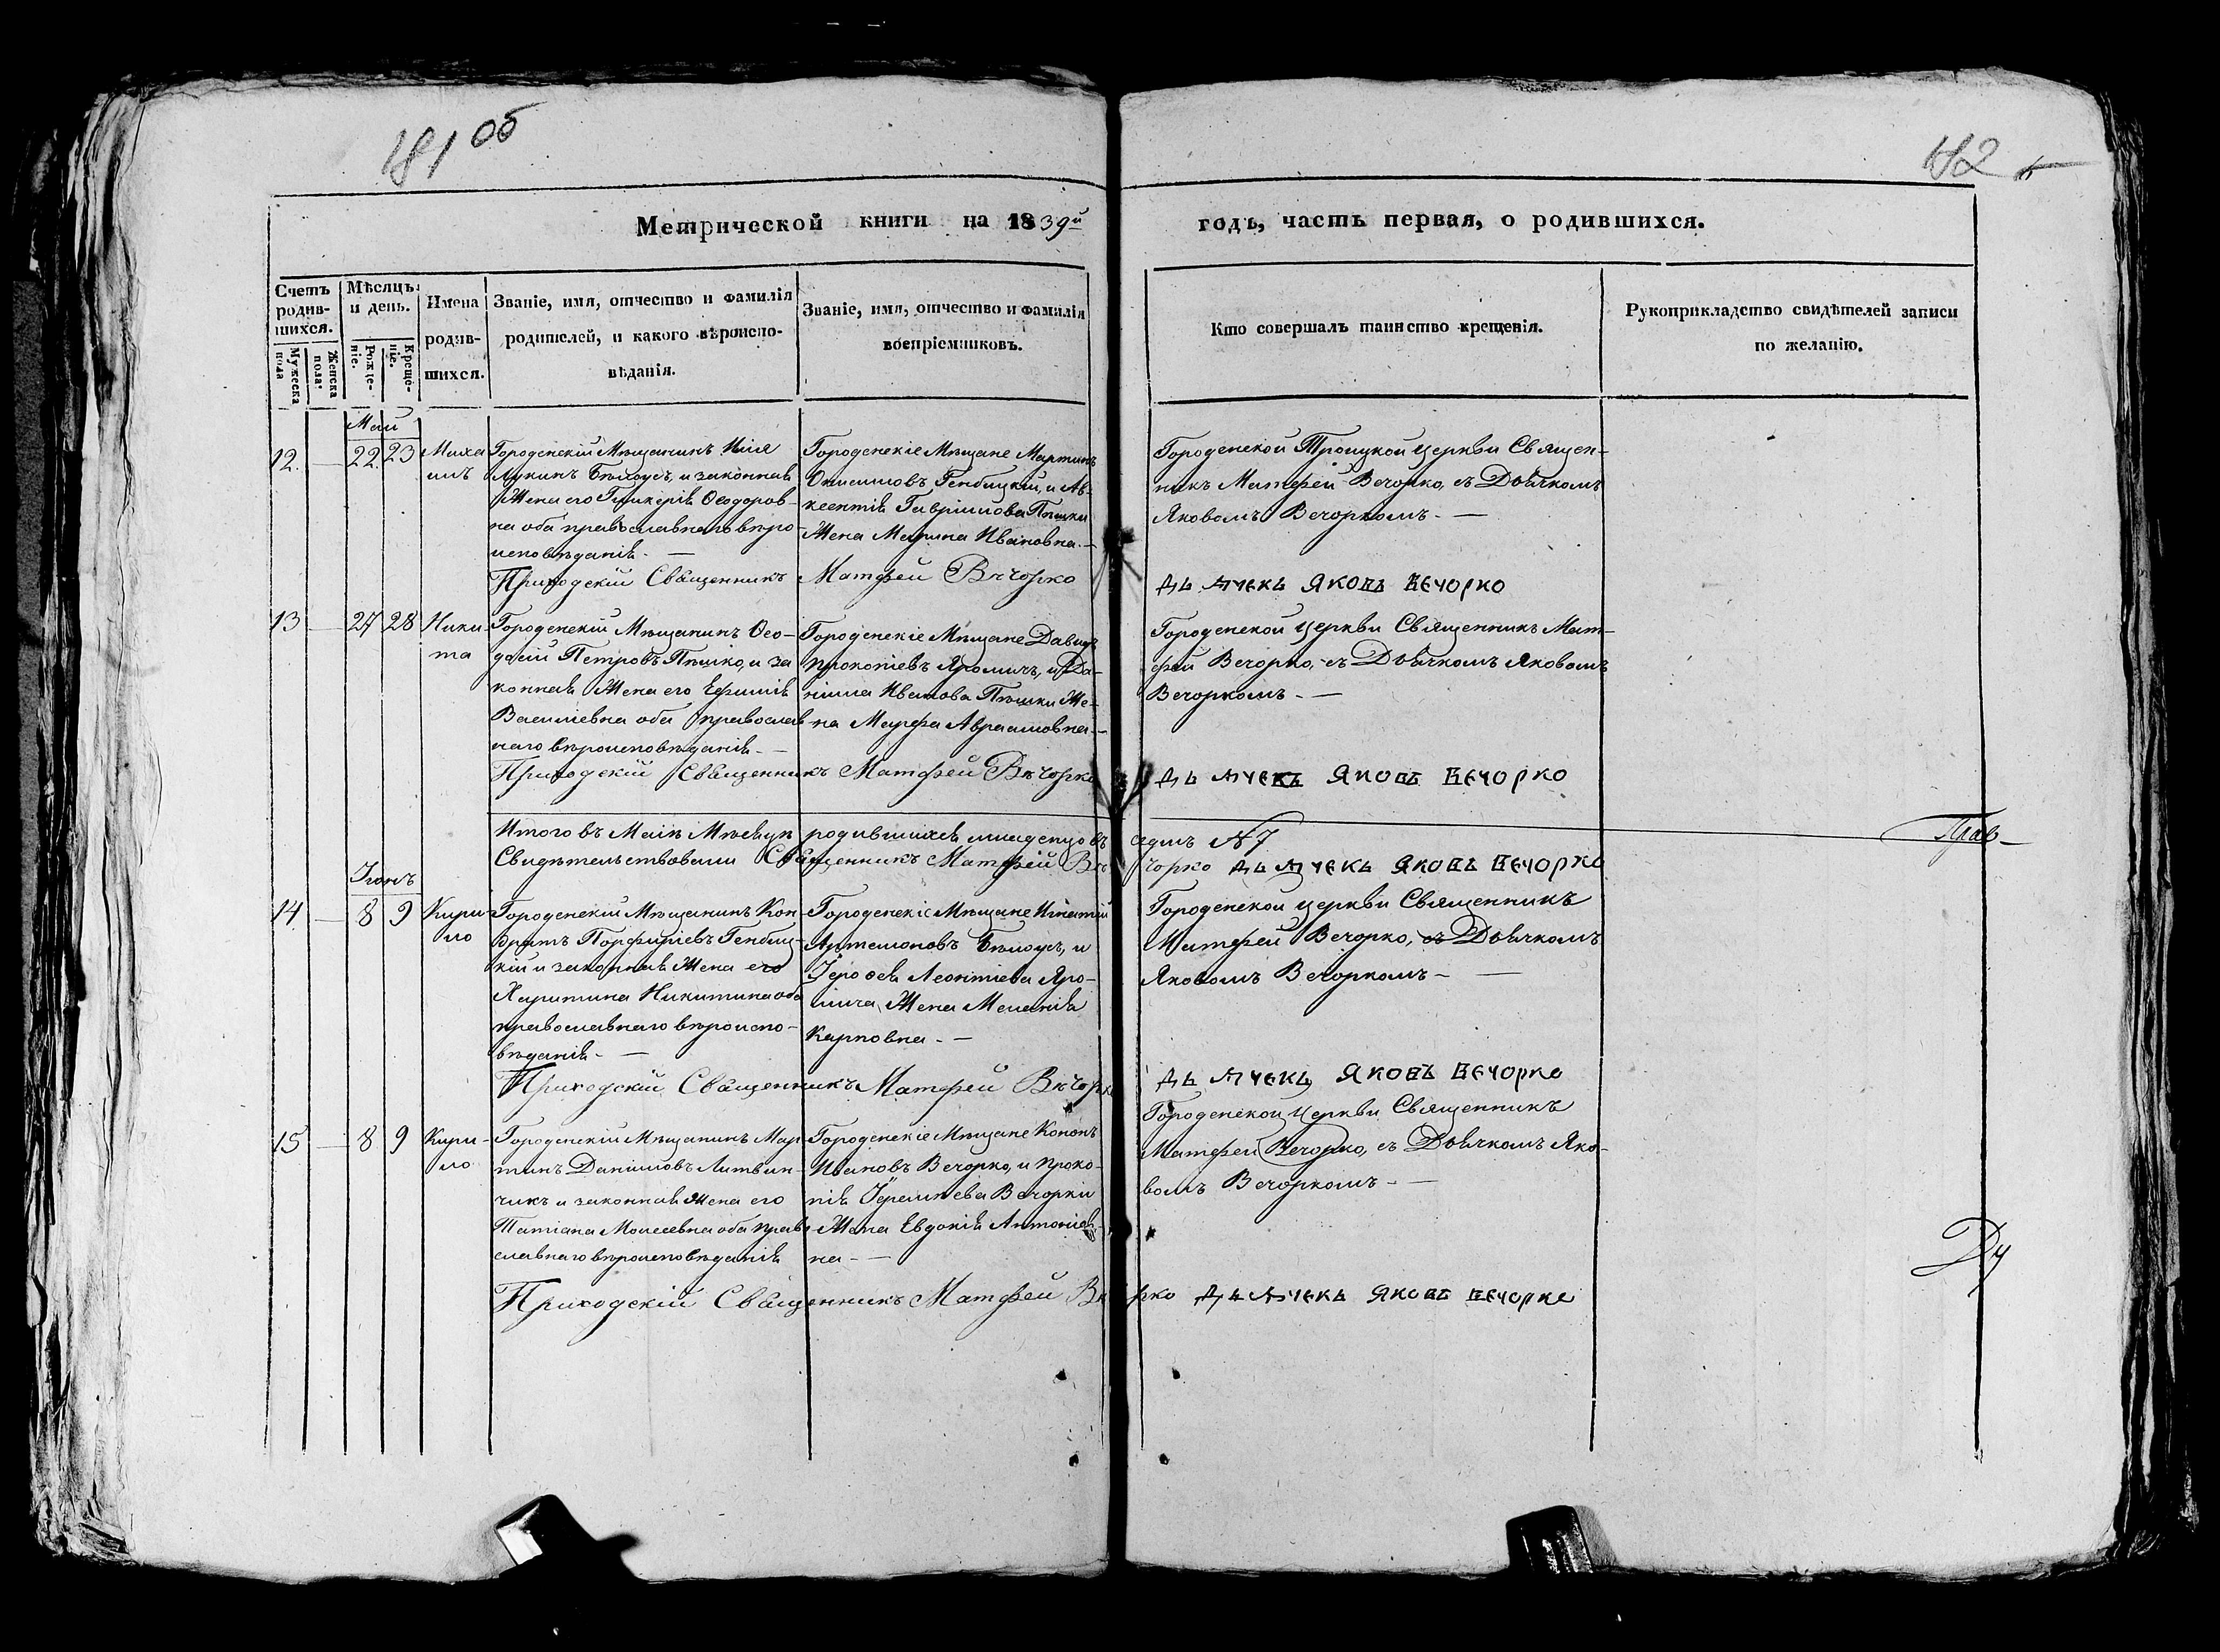 181 об
182
Метрической книги на 1839й
годъ, часть первая, о родившихся.
Счетъ родив-шихся.
Мужеска пола
Женска пола.
Мѣсяцъ и день.
Рожде-ніе.
Креще-ніе.
Имена родив-шихся.
Званіе, имя, отчество и фамилія
родителей, и какого вѣроиспо-
вѣданія.
Званіе, имя, отчество и фамилія
воспріемниковъ.
Кто совершалъ таинство крещенія.
Рукоприкладство свидѣтелей записи
по желанію.
Май
12. — 22. 23
Миха
илъ
Городенскій Мѣщанинъ Илія
Лукинъ Бѣлоусъ, и законная
Жена его Гликерія Ѳеодоров-
на оба православнаго вѣро
исповѣданія. —
Городенскіе Мѣщане Мартинъ
Гембицкій, и Ав-
ксентія Гавріилова Пѣшки
Жена Марина Ивановна. —
Городенской Троицкой церкви Священ-
никъ Матфей Вечорко, съ Дьячкомъ
Яковомъ Вечоркомъ. —
Приходскій Священникъ Матфей Вѣчорко
Дьячекъ Яковъ Вечорко
13 — 27 28
Ники-
та
Городенскій Мѣщанинъ Ѳео-
досій Петровъ Пѣшко, и за
конная Жена его Ефимія
Василіевна оба православ
наго вѣроисповѣданія. —
Городенскіе Мѣщане Давидъ
Прокопіевъ Яромичъ, и Да-
ніила Иванова Пѣшки Же-
на Марфа Авраамовна. —
Городенской церкви Священникъ Мат-
фей Вечорко, съ Дьячкомъ Яковомъ
Вечоркомъ. —
Приходскій Священникъ Матфей Вѣчорко
Дьячекъ Яковъ Вечорко
Итого въ Маіѣ Мѣсяцѣ родившихся младенцовъ седмъ №7
Прав—
Свидѣтельствовали Священникъ Матфей Вечорко Дьячекъ Яковъ Вечорко
Іюнь
14 — 8 9
Кири-
ло
Городенскій Мѣщанинъ Кон-
дратъ Порфиріевъ Гембиц-
кій и законная Жена его
Харитина Никитина оба
православнаго вѣроиспо-
вѣданія. —
Городенскіе Мѣщане Игнатій
Артемоновъ Бѣлоусъ, и
Іерофея Леонтіева Яро-
мича, Жена Меланія
Карповна. —
Городенской церкви Священникъ
Матфей Вечорко, съ Дьячкомъ
Яковомъ Вечоркомъ. —
Приходскій Священникъ Матфей Вѣчорко
Дьячекъ Яковъ Вечорко
15 — 8 9
Кири-
ло
Городенскій Мѣщанинъ Мар
тинъ Даніиловъ Литвин-
чикъ и законная Жена его
Татіана Моисеевна оба право
славнаго вѣроисповѣданія
Городенскіе Мѣщане Кононъ
Ивановъ Вечорко, и Проко-
пія Іереміева Вечорки
Жена Евдокія Антоніев-
на. —
Городенской церкви Священникъ
Матфей Вечорко, съ Дьячкомъ Яко-
вомъ Вечоркомъ. —
Ду
Приходскій Священникъ Матфей Вѣчорко Дьячекъ Яковъ Вечорко